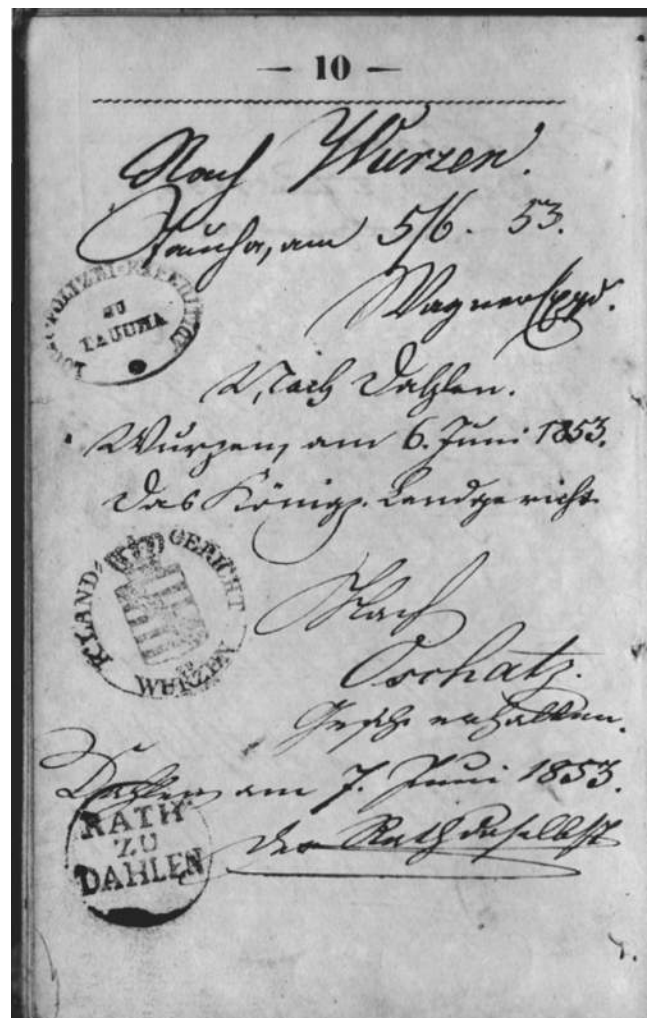 — 10 —
Nach Wurzen.
Taucha, am 5/6. 53.
Wagner Exp.
ZU
TAUCHA
Nach Dahlen.
Wurzen, am 6. Juni 1853.
Das Königl. Landgericht
K. LAND-GERICHT
WURZEN
Nach
Oschatz.
Gesch. erhalten.
Dahlen am 7. Juni 1853.
Der Rath daselbst
RATH
ZU
DAHLEN